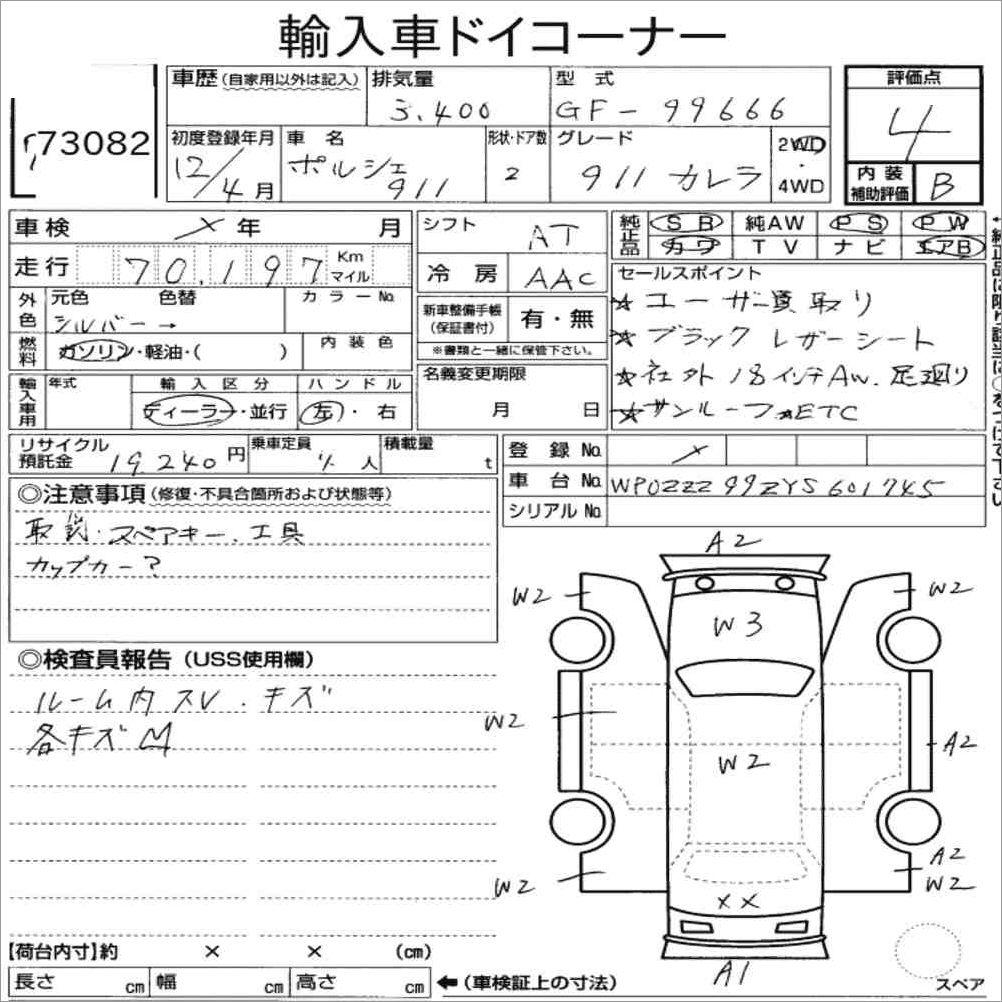 輸入車ドイコーナー
73082
車歴(自家用以外は記入) 排気量 3.400 型式 GF-99666 評価点 4
初度登録年月 12/4月 車名 ポルシェ911 形状・ドア数 2 グレード 911 カレラ 2WD・4WD 内装補助評価 B
車検 × 年 月 シフト AT 純正品 SB 純AW PS PW
走行 70,197 Km マイル 冷房 AAC カワ TV ナビ エアB
外色 元色 色替 カラーNo. シルバー→ 新車整備手帳(保証書付) 有・無 セールスポイント
☆ユーザー買取り
※書類と一緒に保管下さい。 ☆ブラックレザーシート
燃料 ガソリン・軽油・( ) 内装色 名義変更期限 月 日 ☆社外18インチAW.足廻り
輸入車用 年式 輸入区分 ディーラー・並行 ハンドル 左・右 ☆サンルーフ☆ETC
リサイクル預託金 19,240円 乗車定員 4人 積載量 t 登録No. ×
車台No. WP0ZZZ99ZYS601745
シリアルNo.
◎注意事項(修復・不具合箇所および状態等)
取説・スペアキー.工具
カップカー?
◎検査員報告(USS使用欄)
ルーム内スレ.キズ
各キズ凹
A2
W2 W2
W3
W2 A2
W2
A2
W2 W2
××
A1
スペア
【荷台内寸】約 × × (cm)
長さ cm 幅 cm 高さ cm ←(車検証上の寸法)